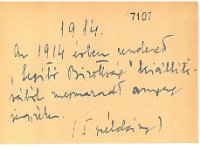 7107
1914.
Az 1914 évben rendezett
"Segítő Bizottság" kiállítá-
sából megmaradt anyag
jegyzék.
(5 példány)